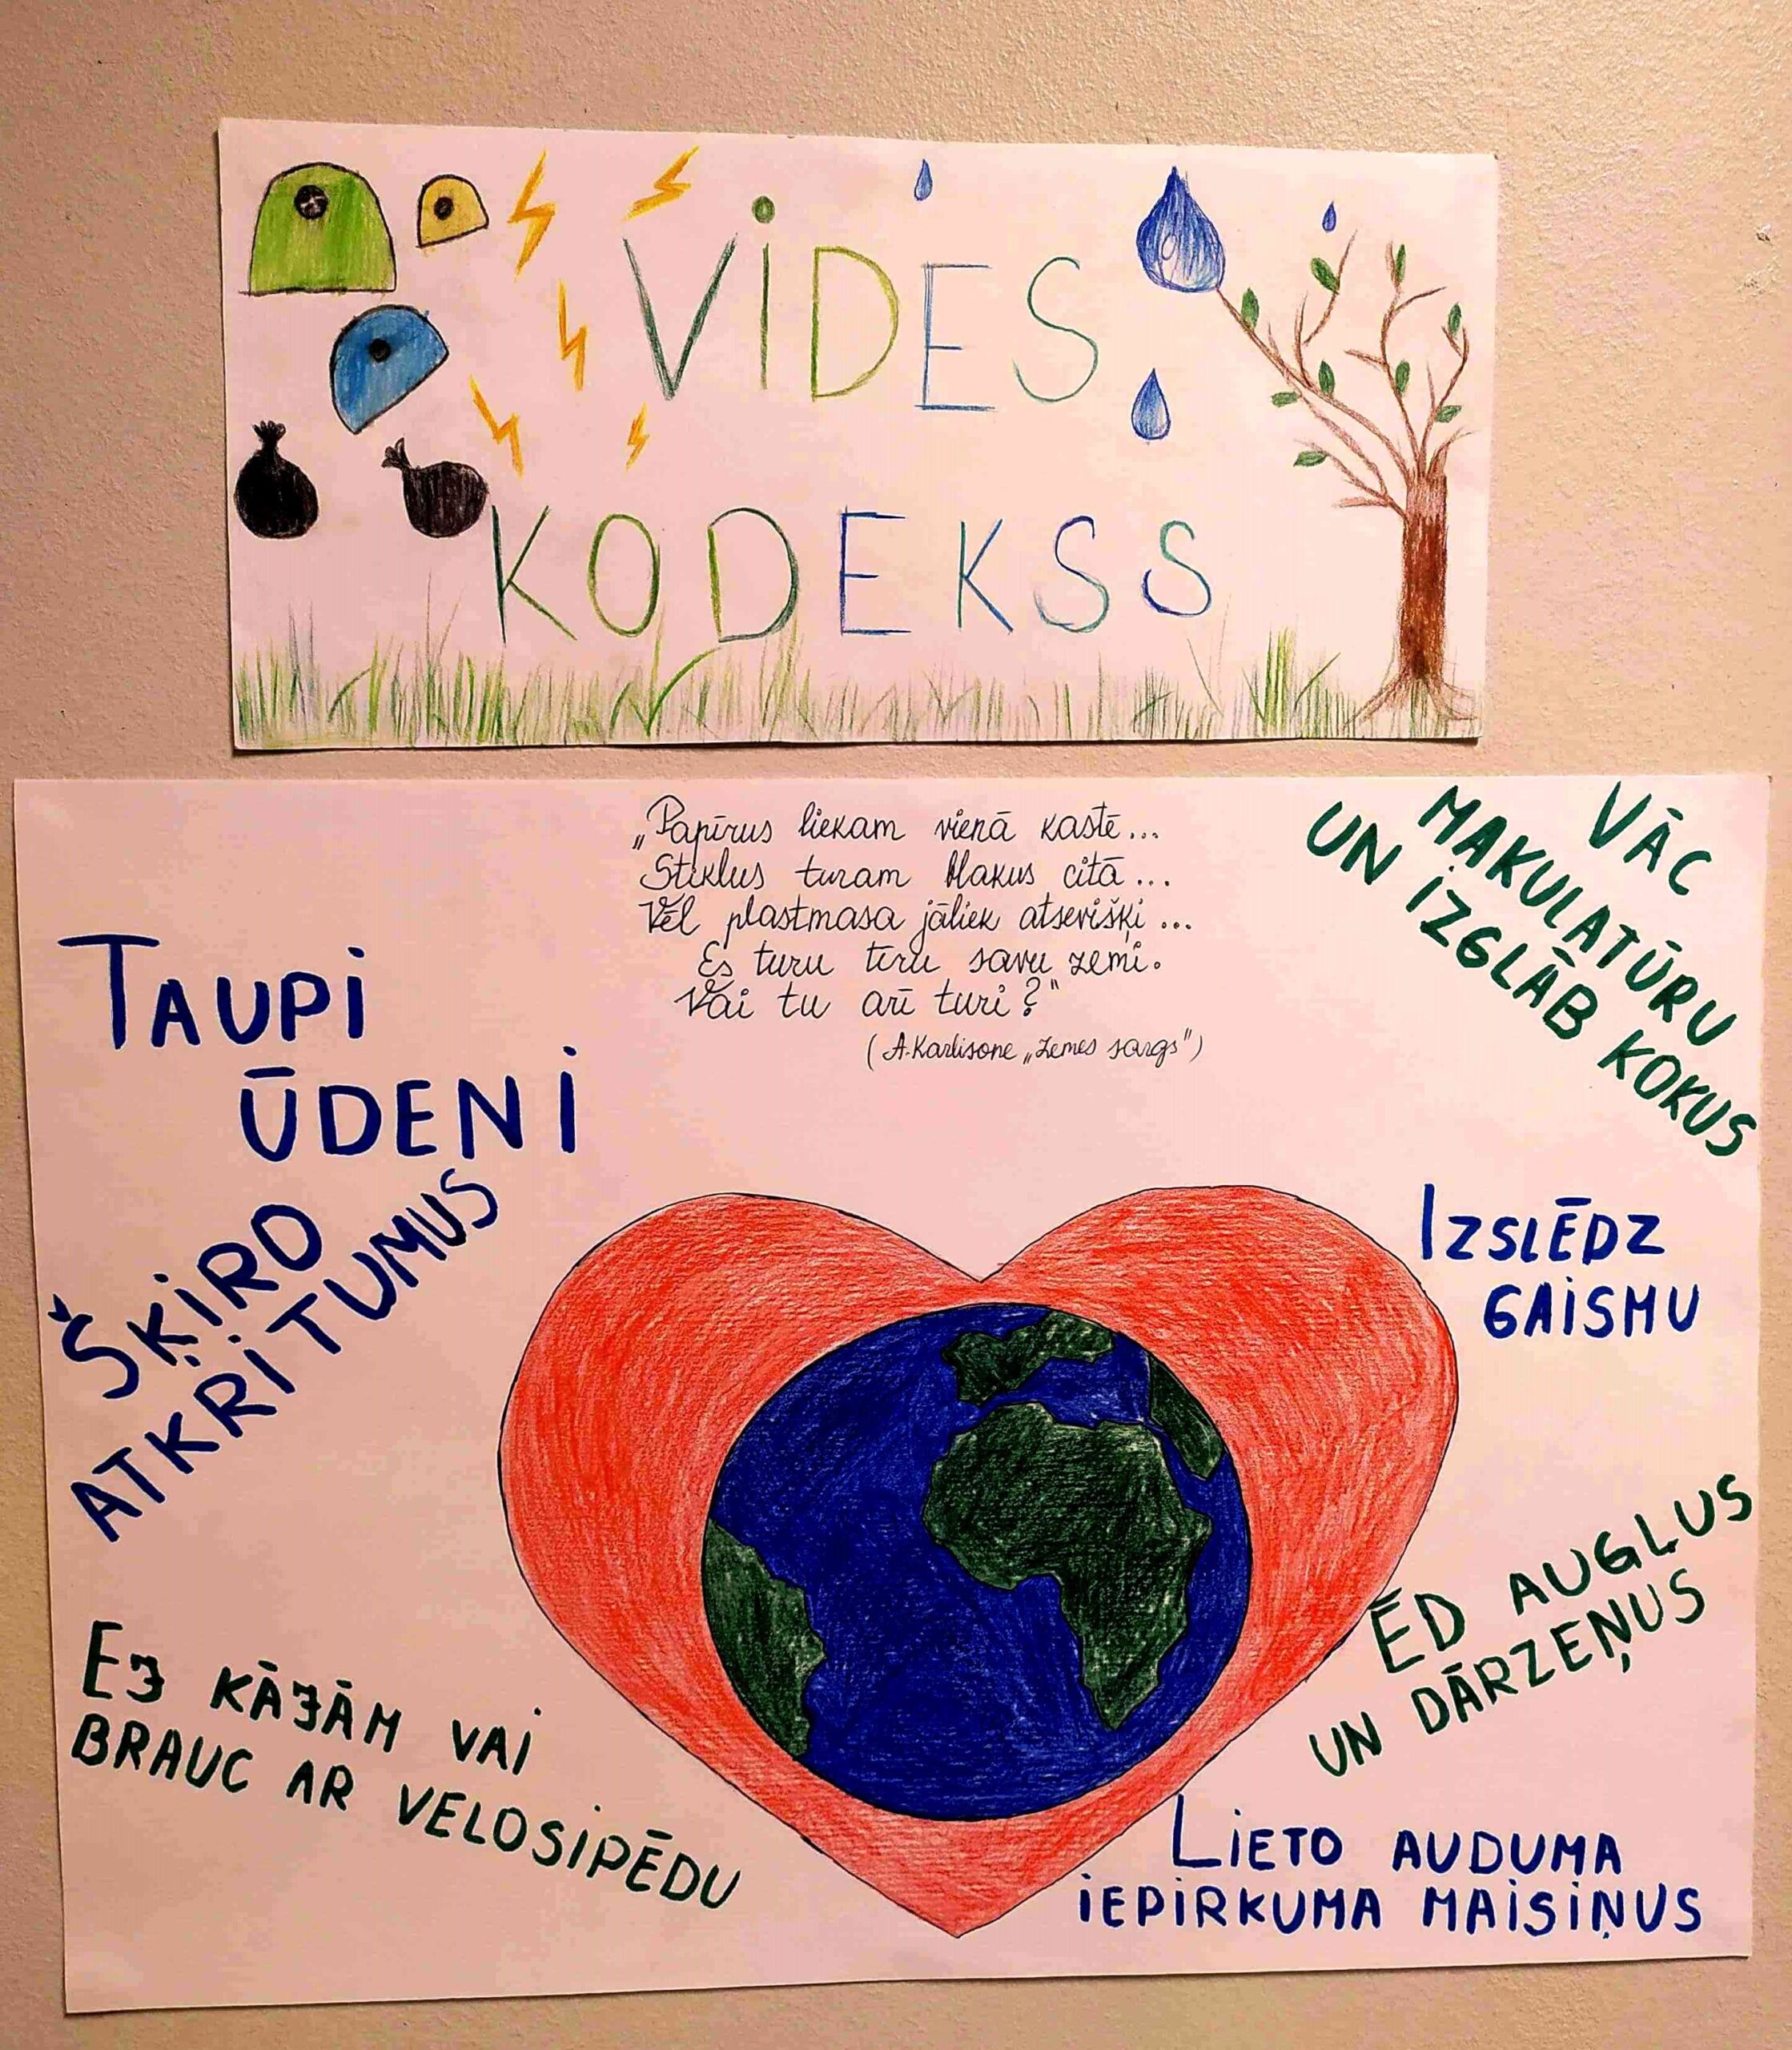 VIDES
KODEKSS
„Papīrus liekam vienā kastē...
Stiklus turam blakus citā...
Vēl plastmasa jāliek atsevišķi...
Es turu tīru savu zemi.
Vai tu arī turi?"
(A.Karlisone „Zemes sargs")
TAUPI
ŪDENI
ŠĶIRO
ATKRITUMUS
EJ KĀJĀM VAI
BRAUC AR VELOSIPĒDU
VĀC
MAKULATŪRU
UN IZGLĀB KOKUS
IZSLĒDZ
GAISMU
ĒD AUGĻUS
UN DĀRZEŅUS
LIETO AUDUMA
IEPIRKUMA MAISIŅUS